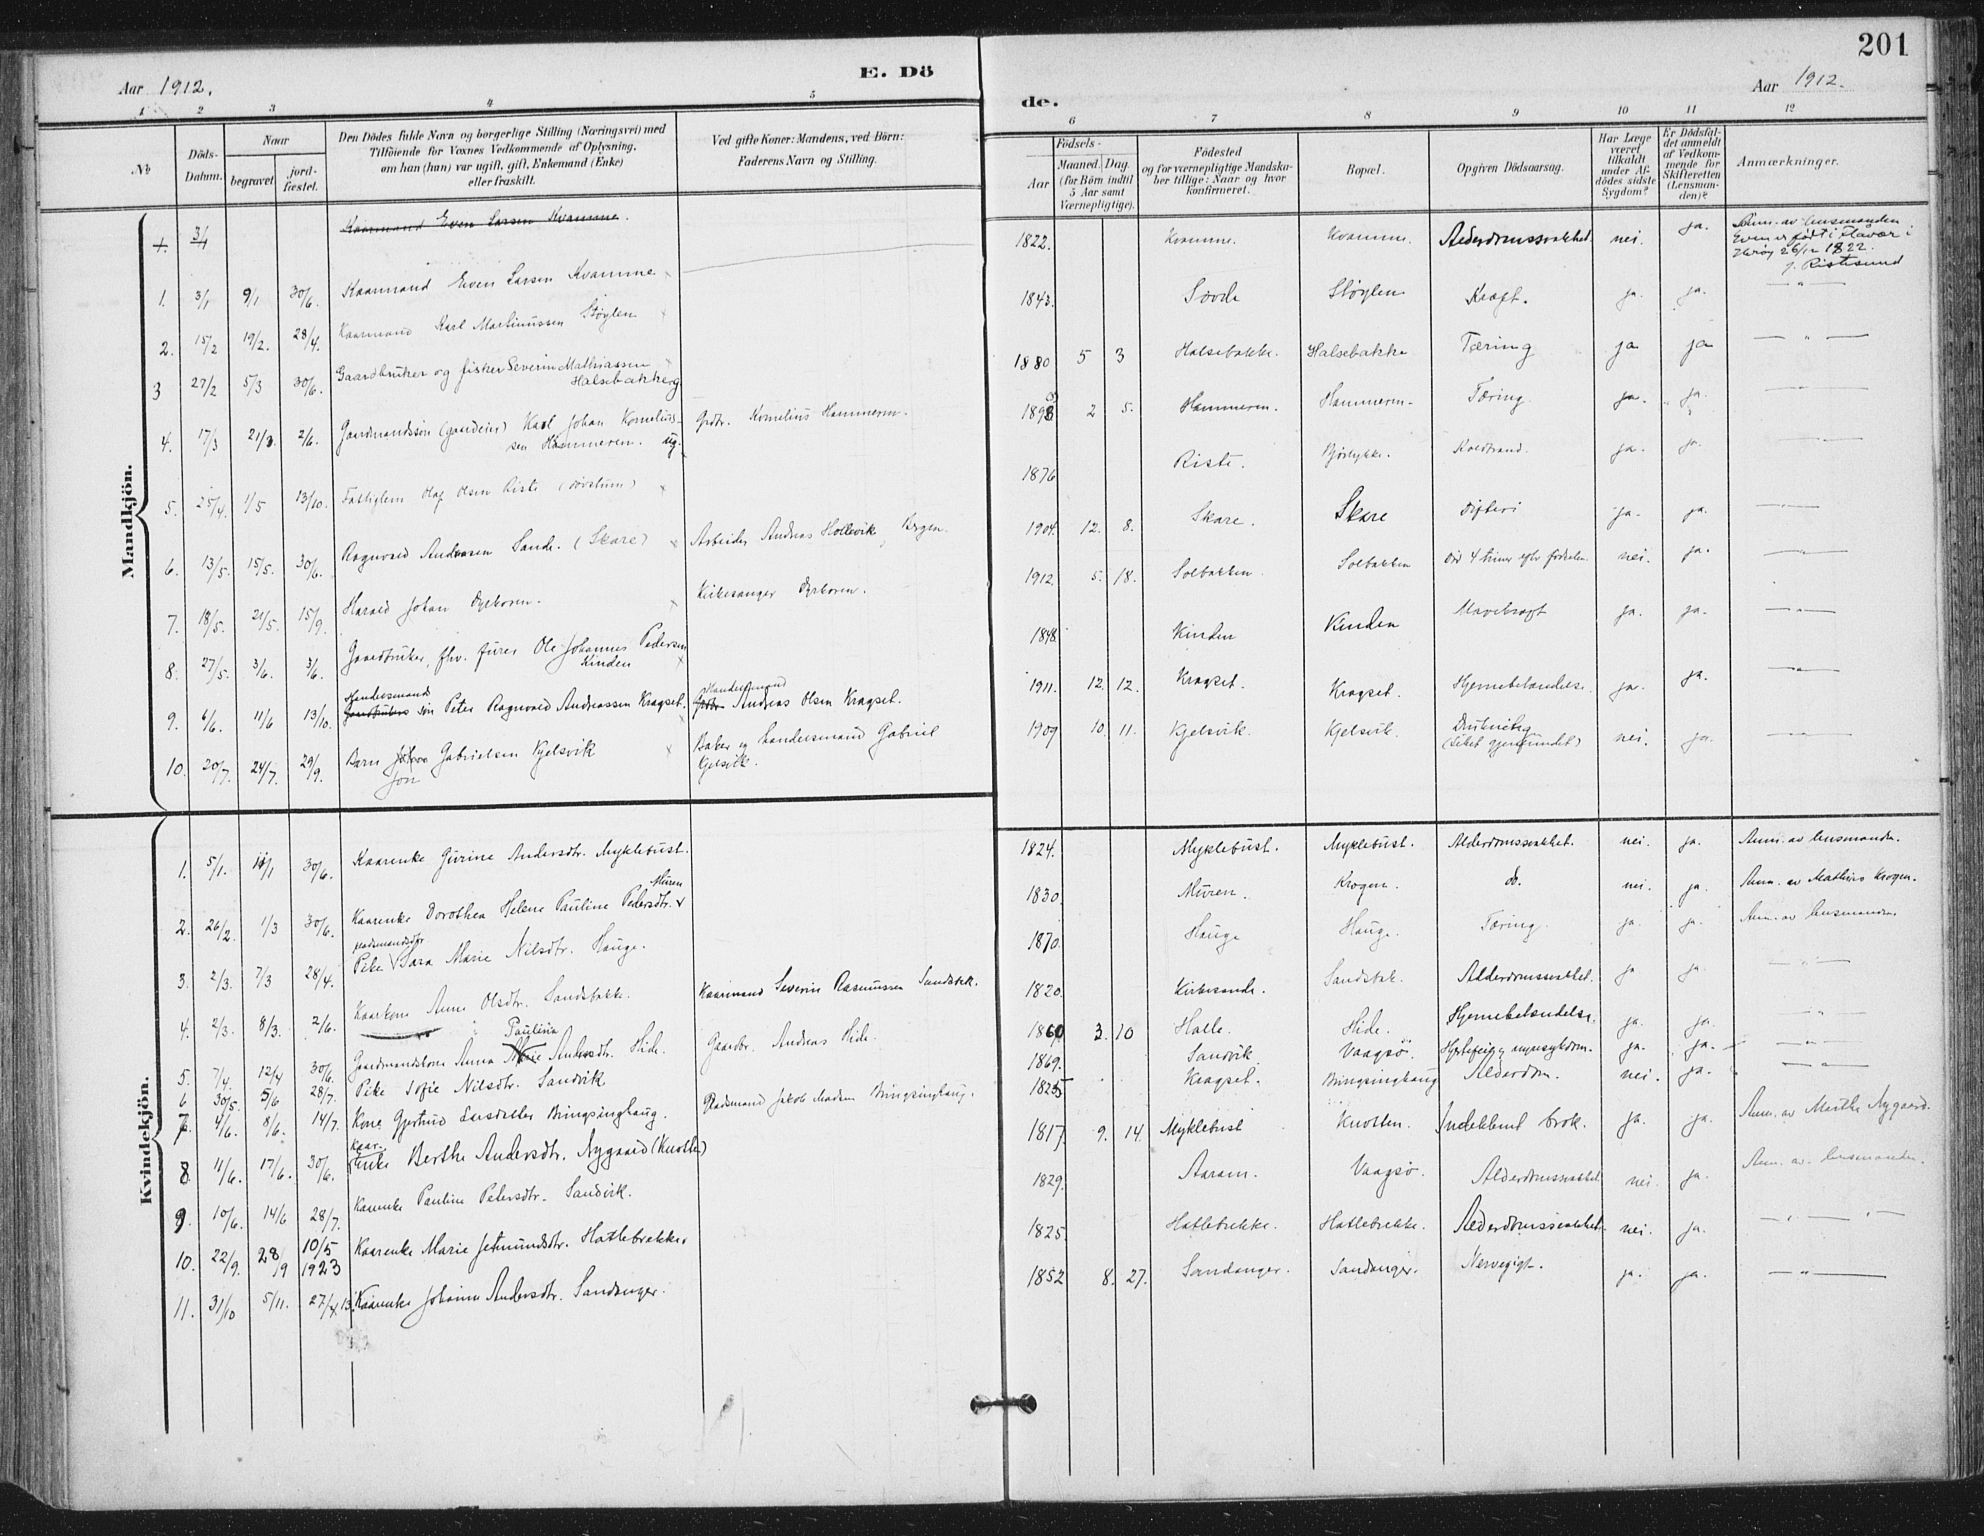 201
Aar 1912.
E. Dö
de.
Aar 1912.
1 2 3 4 5 6 7 8 9 10 11 12
No
Döds-Datum.
Naar
begravet.
jordfæstet.
Den Dödes fulde Navn og borgerlige Stilling (Næringsvei) med
Tilföiende for Voxnes Vedkommende af Oplysning.
om han (hun) var ugift, gift, Enkemand (Enke)
eller fraskilt.
Ved gifte Koner: Mandens, ved Börn:
Faderens Navn og Stilling.
Födsels-
Aar
Maaned. Dag.
(for Börn indtil
5 Aar samt
Værnepligtige).
Födested
og for værnepligtige Mandska-
ber tillige: Naar og hvor
konfirmeret.
Bopæl.
Opgiven Dödsaarsag.
Har Læge
været
tilkaldt
under Af-
dödes sidste
Sygdom?
Er Dödsfal-
det anmeldt
af Vedkom-
mende for
Skifteretten
(Lensman-
den)?
Anmærkninger.
Mandkjön.
3/1 Kaarmand Even Larsen Kvamme. 1822. Kvamme. Kvamme. Alderdomssvakhed. nei. ja. Anm. av lensmanden
Even er født i Flåvær i
Herøy 26/12 1822.
1. 3/1 9/1 30/6. Kaarmand Even Larsen Kvamme 1843. Sovde Støylen Kræft. ja. ja. — " —
2. 15/2 19/2. 28/4. Kaarmand Karl Martinussen Støylen 1880 5 3 Halsebakke. Halsebakke Tæring ja ja — " —
3 27/2 5/3 30/6. Gaardbruker og fisker Severin Mathiassen
Halsebakke 1893 2 5. Hammeren. Hammeren. Tæring. ja. ja.
4. 17/3 21/3. 2/6. Gaardmandssøn Karl Johan Kornelius-
sen Hammeren. ug. Grdbr. Kornelius Hammeren. 1876 Riste. Bjørlykke. Koldbrand. ja. ja.
5. 25/4. 1/5 13/10. Fattiglem Olaf Olsen Riste (døvstum) 1904. 12. 8. Skare. Skare Difteri ja. ja.
6. 13/5. 15/5. 30/6. Ragnvald Andreasen Sande. (Skare) Arbeider Andreas Hollevik, Bergen. 1912. 5. 18. Solbakken. Solbakken Død 4 timer eft. fødselen. nei. ja.
7. 18/5. 21/5. 15/9. Harald Johan Dyrkoren. Kirkesanger Dyrkoren. 1848. Kinden Kinden Mavekræft ja. ja.
8. 27/5. 3/6. 3/6. Gaardbruker, fhv. furer Ole Johannes Pedersen
Kinden 1911. 12. 12. Kragset. Kragset. Hjernebetændelse. ja. ja.
9. 6/6. 11/6 13/10. Handelsmands Gaardbrukers søn Peter Ragnvald Andreassen Kragset. Handelsmand Grdbr. Andreas Olsen Kragset. 1909 10. 11. Kjelsvik. Kjelsvik. Drukning
(Liket gjenfundet) nei. ja.
10. 20/7. 24/7. 29/9. Barn Johan Gabrielsen Kjelsvik
Jon Baker og handelsmand Gabriel
Kvindekjön.
1. 5/1. 11/1 30/6. Kaarenke Gurine Andersdtr. Myklebust. 1824. Myklebust. Myklebust. Alderdomssvakhet. nei. ja. Anm. av lensmanden.
2. 26/2. 1/3 30/6. Kaarenke Dorothea Helene Pauline Pedersdtr. Muren 1830 Muren. Krogen. do. nei. ja. Anm. av Mathias Krogen.
3. 2/3. 7/3 28/4. Pike Sara Marie Nilsdtr. Hauge. 1870. Hauge Hauge. Tæring. ja. ja. Anm. av lensmanden.
4. 2/3. 8/3. 2/6. Kaarkone Anne Olsdtr. Sandsbakk. Kaarmand Severin Rasmussen Sandsbk. 1820. Kirkesande. Sandsbak. Alderdomssvakhet. ja ja.
5. 7/4. 12/4 30/6. Gaardmandskone Anna Marie Paulina Andersdtr. Hide. Gaardbr. Andreas Hide. 1860 3. 10 Halle. Hide. Hjernebetændelse. ja. ja.
6 30/5. 5/6 28/7. Pike Sofie Nilsdtr. Sandvik 1869. Sandvik Vaagsø. ja. ja.
7. 4/6. 8/6. 14/7. Kone Gjertrud Larsdatter Bringsinghaug. Grdmand Jakob Madsen Bringsinghaug. 1825 Kragset. Bringsinghaug Alderdom. nei. ja.
8 11/6. 17/6. 30/6. Kaar- Enke Berthe Andersdtr. Nygaard (Knotten) 1817. 9. 14. Myklebust Knotten. Indeklemt brok. ja. ja. Anm. av Marthe Nygaard.
9. 10/6. 14/6 28/7. Kaarenke Pauline Petersdtr. Sandvik. 1829. Aaram. Vaagsø. Alderdomssvakhet nei. ja. Anm. av lensmanden.
10. 22/9. 28/9 10/5 1923 Kaarenke Marie Jetmundsdtr. Hatlebrekke. 1825. Hatlebrekke. Hatlebrekke. Alderdomssvakhet. nei. ja.
11. 31/10 5/11. 27/4.13. Kaarenke Johanne Andersdtr. Sandanger. 1852 8. 27. Sandanger. Sandanger. Nervegigt. ja. ja. — " —